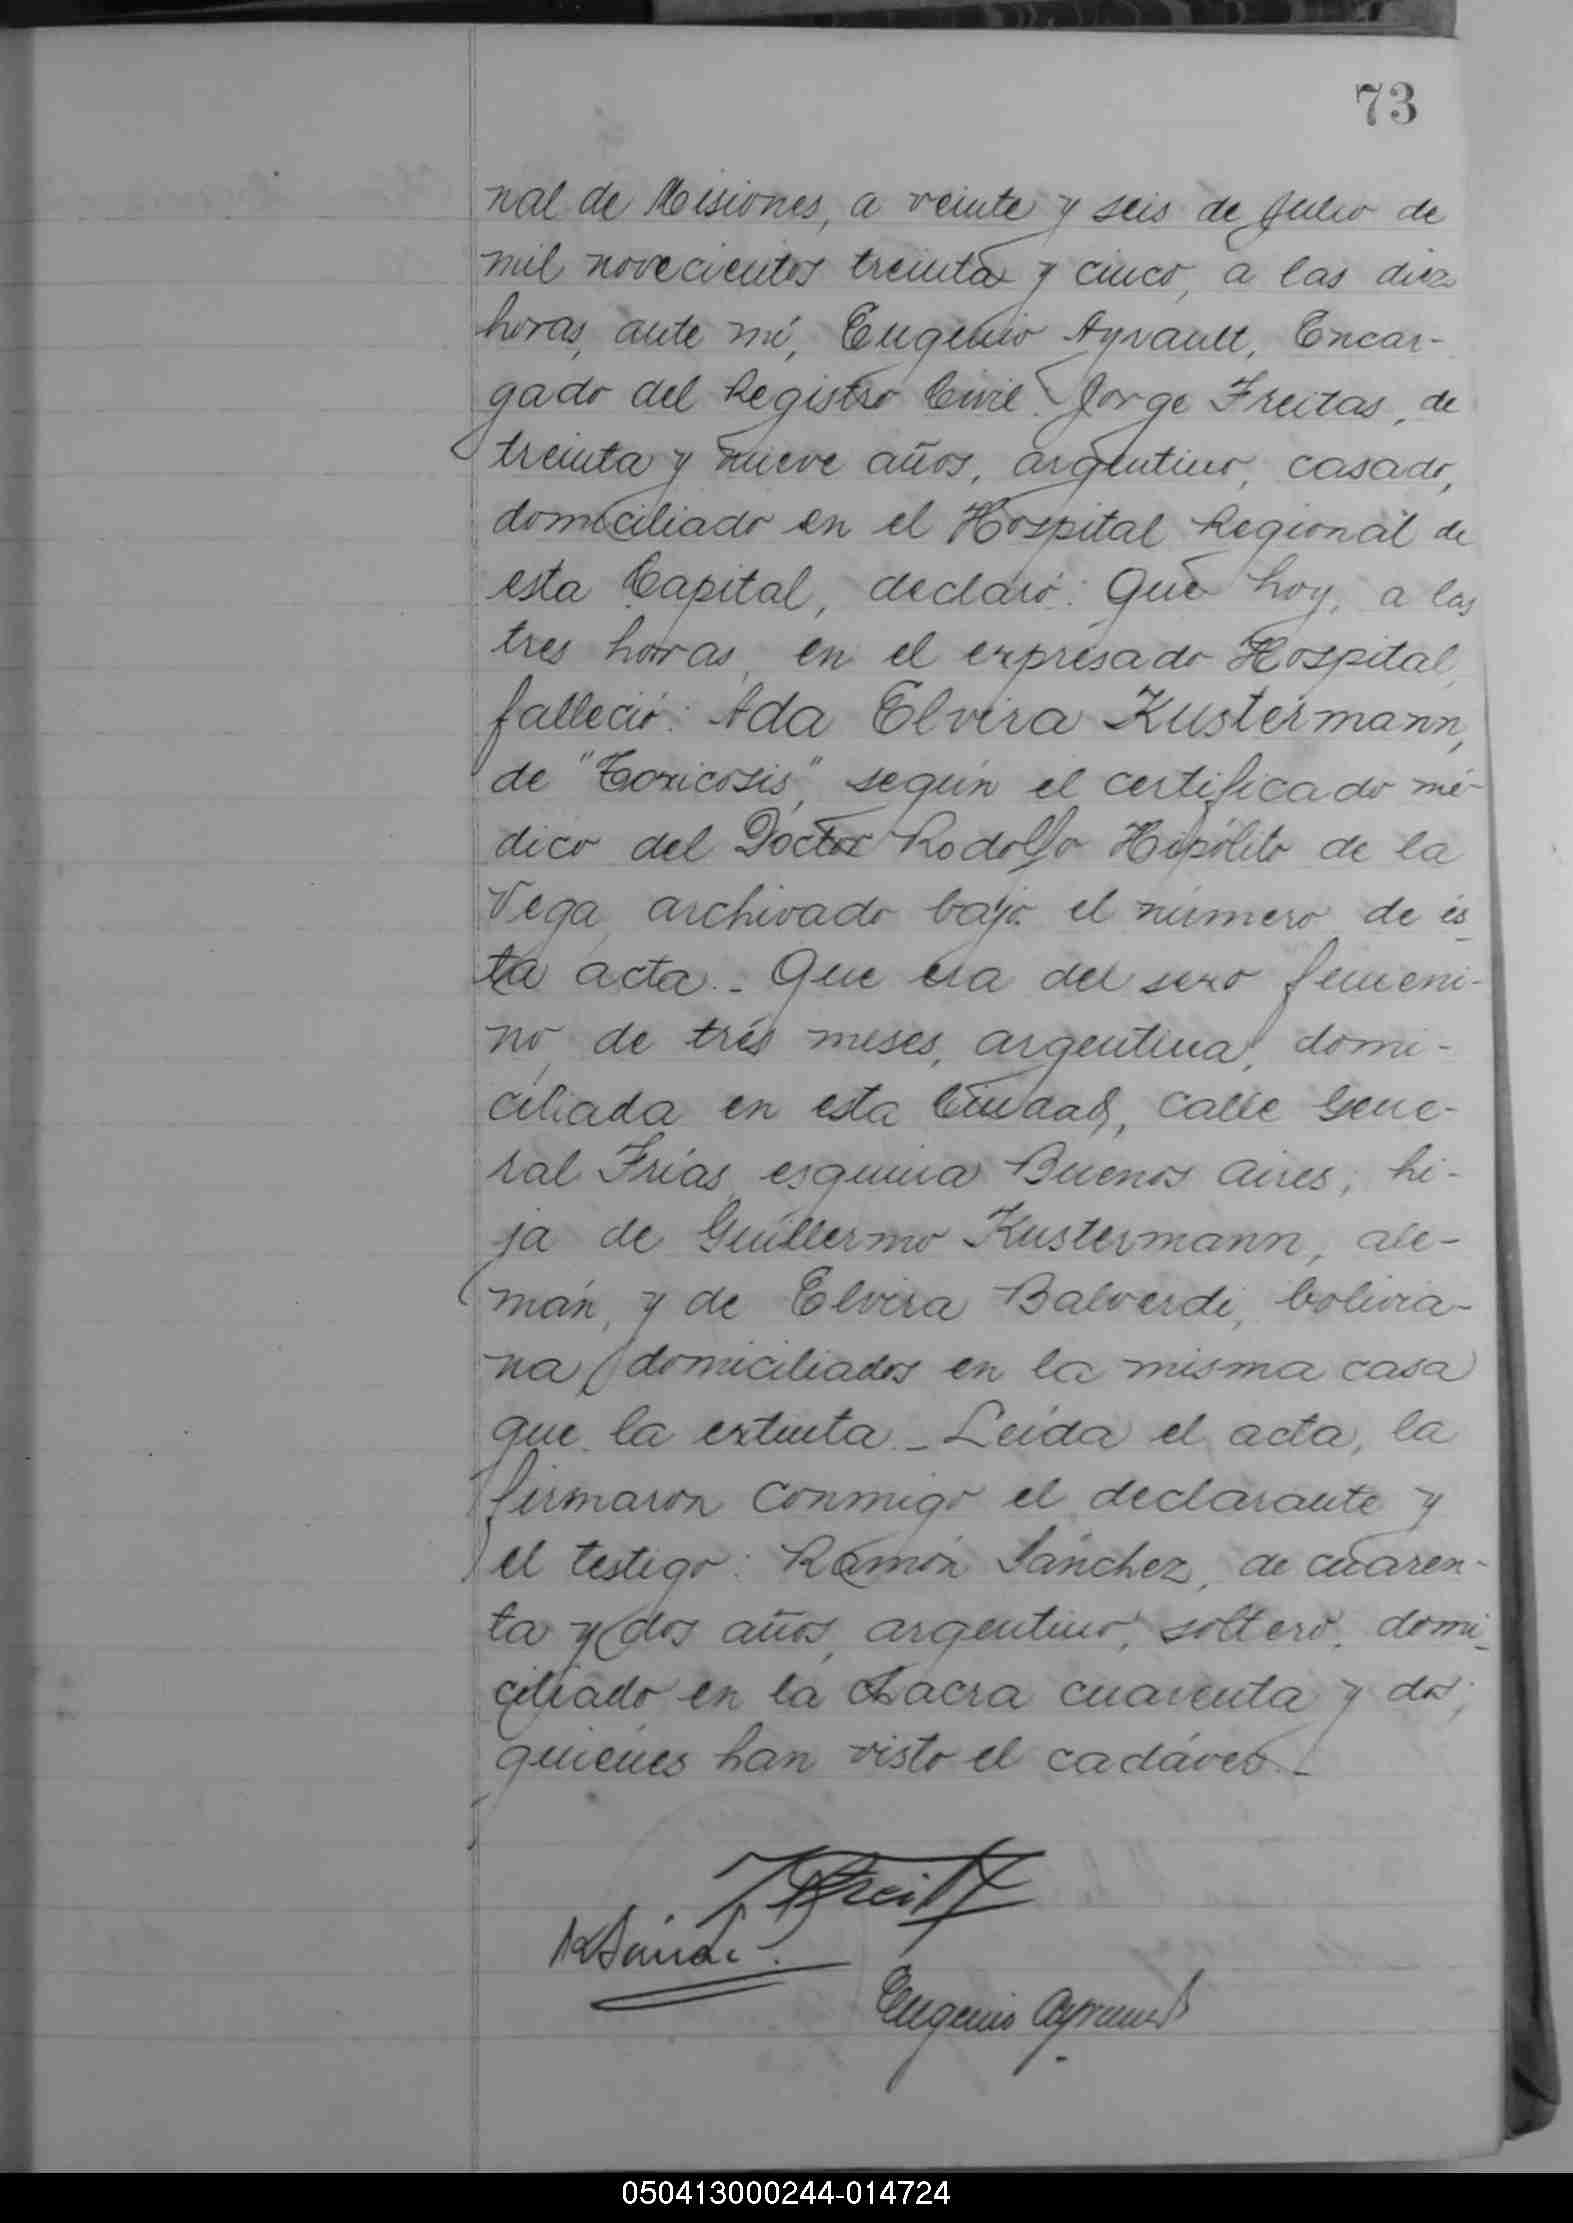 73
nal de Misiones, a veinte y seis de Julio de
mil novecientos treinta y cinco, a las diez
horas, ante mí, Eugenio Ayrault, Encar-
gado del Registro Civil. Jorge Freitas, de
treinta y nueve años, argentino, casado,
domiciliado en el Hospital Regional de
esta Capital, declaró: Que hoy, a las
tres horas, en el expresado Hospital,
falleció: Ada Elvira Kustermann,
de "Toxicosis", según el certificado mé-
dico del Doctor Rodolfo Hipólito de la
Vega, archivado bajo el número de és
ta acta.- Que era del sexo femeni-
no, de trés meses, argentina, domi-
ciliada en esta Ciudad, calle Gene-
ral Frías, esquina Buenos Aires; hi-
ja de Guillermo Kustermann, ale-
mán, y de Elvira Balverdi, bolivia-
na, domiciliados en la misma casa
que la extinta.- Leída el acta, la
firmaron conmigo el declarante y
el testigo: Ramón Sánchez, de cuaren-
ta y dos años, argentino, soltero, domi-
ciliado en la chacra cuarenta y dos;
quiénes han visto el cadáver.-
Eugenio Ayrault
050413000244-014724